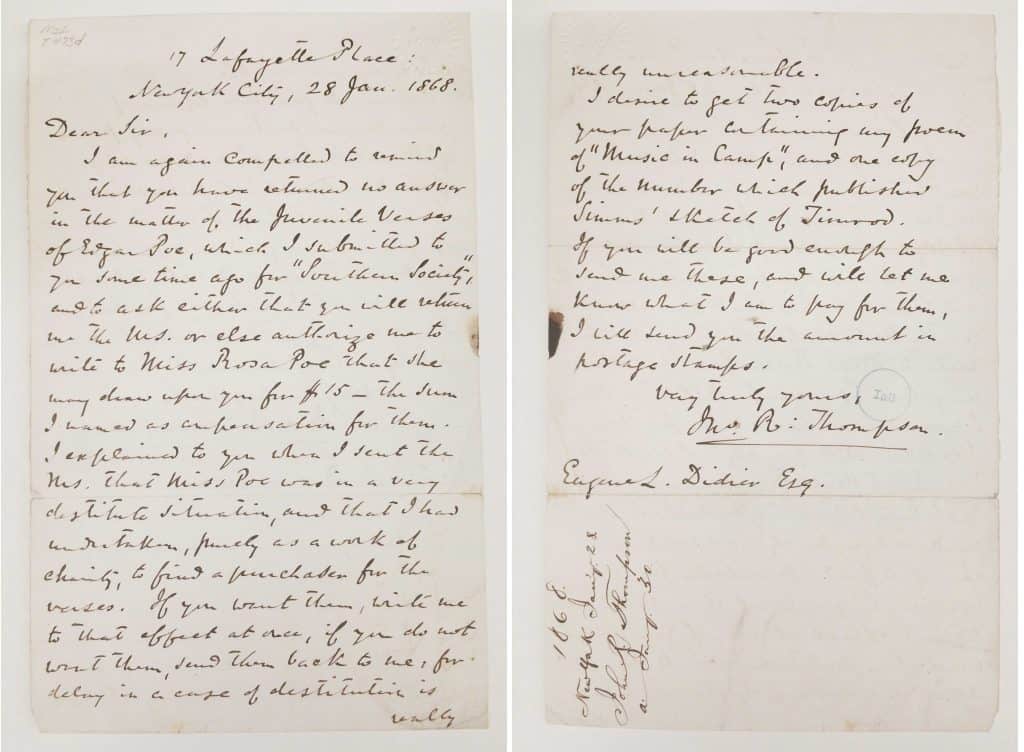 17 Lafayette Place:
New York City, 28 Jan. 1868.
Dear Sir,
I am again compelled to remind
you that you have returned no answer
in the matter of the Juvenile Verses
of Edgar Poe, which I submitted to
you some time ago for "Southern Society",
and to ask either that you will return
me the Ms. or else authorize me to
write to Miss Rosa Poe that she
may draw upon you for $15 – the sum
I named as compensation for them.
I explained to you when I sent the
Ms. that Miss Poe was in a very
destitute situation, and that I had
undertaken, purely as a work of
charity, to find a purchaser for the
verses. If you want them, write me
to that effect at once, if you do not
want them, send them back to me, for
delay in a case of destitution is
really
really unreasonable.
I desire to get two copies of
your paper containing my poem
of "Music in Camp", and one copy
of the number which published
Simms' sketch of Timrod.
If you will be good enough to
send me these, and will let me
know what I am to pay for them,
I will send you the amount in
postage stamps.
Very truly yours,
Jno. R: Thompson.
Eugene L. Didier Esq.
1868.
New York Jany 28
John R Thompson
a Jany 30